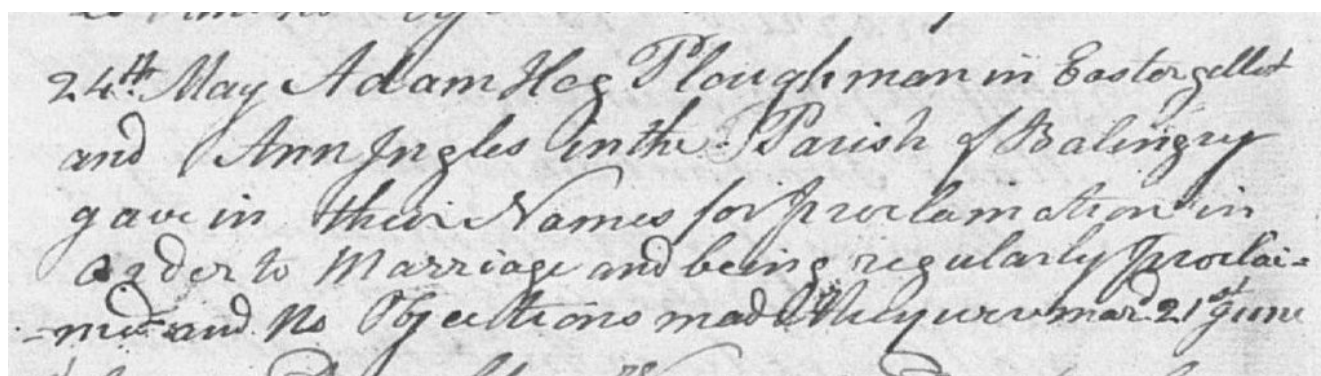 24th May Adam Hog Ploughman in Easter gellet
and Ann Ingles in the Parish of Balingry
gave in their Names for proclamation in
order to Marriage and being regularly proclai=
=med and No Objections made they were mard. 21st June